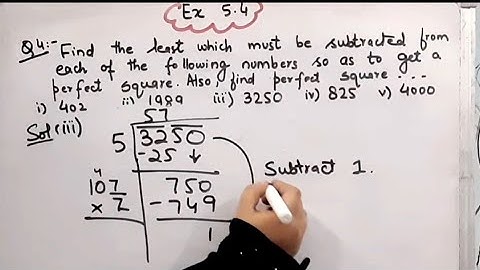 Ex 5.4
Q4:- Find the least which must be subtracted from
each of the following numbers so as to get a
perfect square. Also, find perfect square ....
i) 402 ii) 1989 iii) 3250 iv) 825 v) 4000
Sol (iii)
57
5 3250
-25 ↓
4
107 750
x 7 - 749
1
Subtract 1.